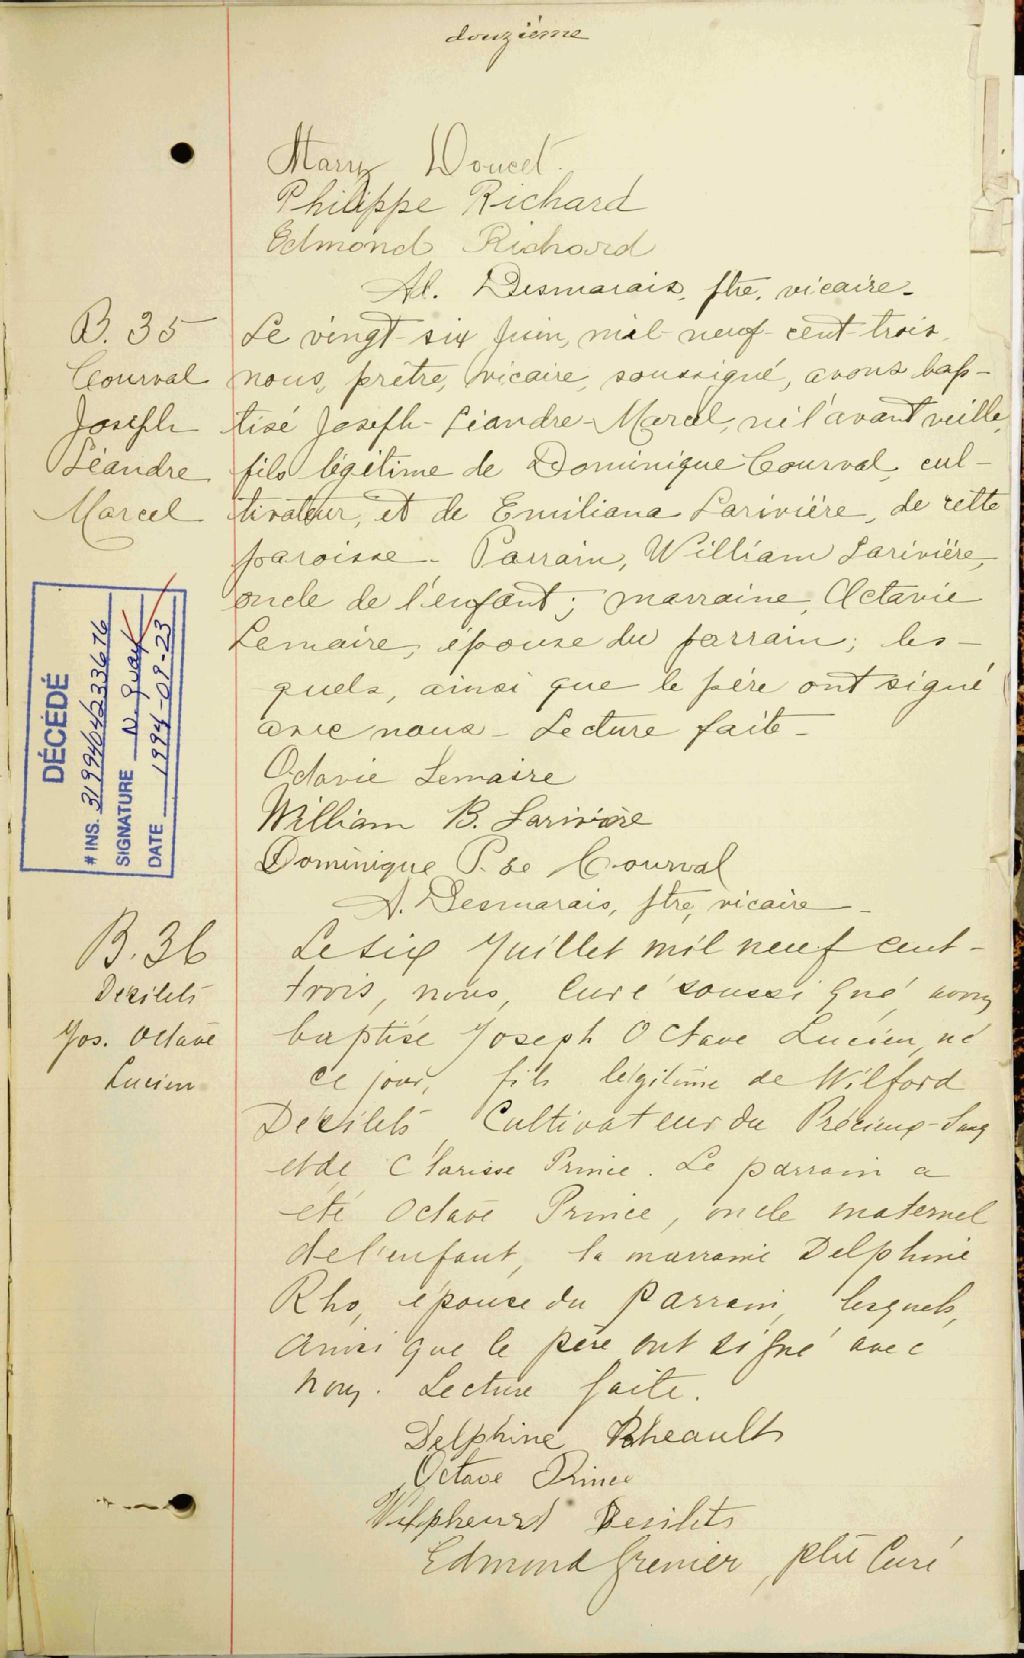 douzième
Mary Doucet.
Philippe Richard
Edmond Richard
Al. Desmarais, ptre, vicaire.
B. 35
Courval
Joseph
Léandre
Marcel
Le vingt-six Juin, mil-neuf-cent-trois,
nous, prêtre, vicaire, soussigné, avons bap-
tisé Joseph-Léandre-Marcel, né l'avant veille,
fils légitime de Dominique Courval, cul-
tivateur, et de Emiliana Larivière, de cette
paroisse. Parrain, William Larivière,
oncle de l'enfant; marraine, Octavie
Lemaire, épouse du parrain; les-
quels, ainsi que le père ont signé
avec nous. Lecture faite.
Octavie Lemaire
William B. Larivière
Dominique P. de Courval
A. Desmarais, ptre, vicaire
DÉCÉDÉ
# INS. 3199404233676
SIGNATURE N. Guay
DATE 1994-09-23
B. 36
Desilets
Jos. Octave
Lucien
Le six Juillet mil neuf cent-
trois, nous, Curé soussigné avons
baptisé Joseph Octave Lucien, né
ce jour, fils légitime de Wilford
Desilets, Cultivateur du Précieux-Sang
et de Clarisse Prince. Le parrain a
été Octave Prince, oncle maternel
de l'enfant, la marraine Delphine
Rho, épouse du parrain, lesquels,
ainsi que le père ont signé avec
nous. Lecture faite.
Delphine Rheault
Octave Prince
Wilpheurd Desilets
Edmond Grenier, ptre Curé